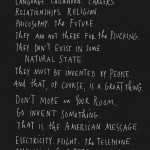 LANGUAGE. CHILDHOOD. CAREERS.
RELATIONSHIPS. RELIGION.
PHILOSOPHY. THE FUTURE.
THEY ARE NOT THERE FOR THE PLUCKING.
THEY DON'T EXIST IN SOME
NATURAL STATE.
THEY MUST BE INVENTED BY PEOPLE.
AND THAT, OF COURSE, IS A GREAT THING.
DON'T MOPE IN YOUR ROOM.
GO INVENT SOMETHING.
THAT IS THE AMERICAN MESSAGE.
ELECTRICITY. FLIGHT. THE TELEPHONE.